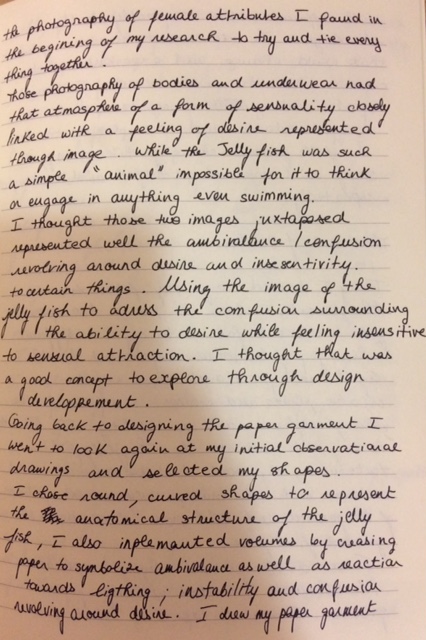 the photography of female attributes I found in
the begining of my research to try and tie every
thing together.
Those photography of bodies and underwear had
that atmosphere of a form of sensuality closely
linked with a feeling of desire represented
though image. While the Jelly fish was such
a simple "animal" impossible for it to think
or engage in anything even swimming.
I thought those two images juxtaposed
represented well the ambivalance / confusion
revolving around desire and insesentivity.
to certain things. Using the image of the
jelly fish to adress the confusion surrounding
the ability to desire while feeling insensitive
to sensual attraction. I thought that was
a good concept to explore through design
developpement.
Going back to designing the paper garment I
went to look again at my initial observational
drawings and selected my shapes.
I chose round, curved shapes to represent
the anatomical structure of the jelly
fish, I also inplemanted volumes by creasing
paper to symbolize ambivalance as well as reaction
towards ligthing; instability and confusion
revolving around desire. I drew my paper garment